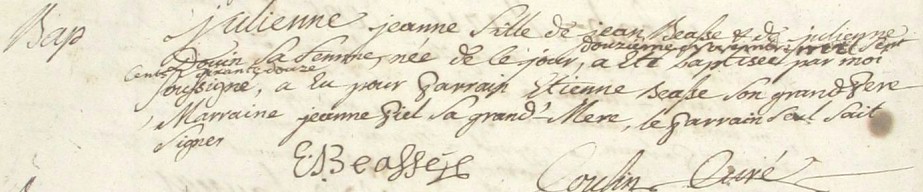 Bap Julienne jeanne fille de jean Beasse et de julienne
Douin sa femme, née de ce jour, a été baptisée par moi
douzieme novembre mil sept
cents quarante douze
soussigné, a eu pour Parrain Etienne Beasse son grand Pere
Marraine jeanne Piel sa grand'Mere, le Parrain seul sait
signer
E Beasse
Coulin Curé